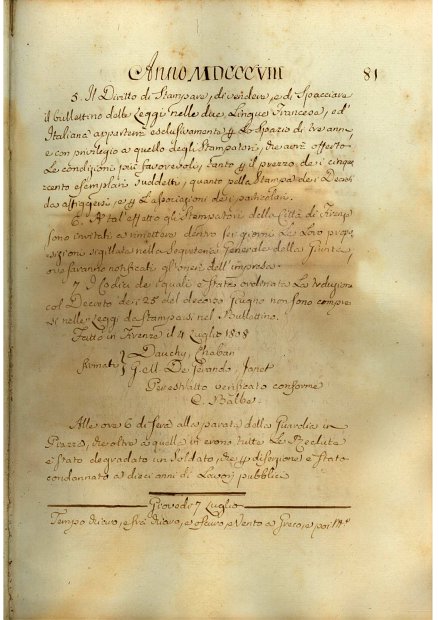 Anno MDCCCVIII 81
5. Il Diritto di Stampare, di vendere, e di Spacciare
il bullettino delle Leggi nelle due Lingue Francese, ed
Italiana apparterrà esclusivamente p lo Spazio di tre anni
e con privilegio a quello degli Stampatori, che avrà offerto
Le condizioni più favorevoli, tanto p il prezzo dei cinque
cento esemplari suddetti, quanto pella Stampa dei Decreti
da affiggersi e p le associazioni dei particolari.
6. A tal'effetto gli Stampatori della Città di Firenze
sono invitati a rimettere dentro sei giorni Le Loro propo
sizioni sigillate nella Segreteria Generale della Giunta,
ove saranno notificati gli oneri dell'impresa.
7. I Codici dei quali è stata ordinata La traduzione
col Decreto dei 25 del decorso Giugno non sono compre
si nelle Leggi da stamparsi nel Bullettino.
Fatto in Firenze il 4 Luglio 1808
Dauchy, Chaban
Firmati G. ell De Gerando, Janet
Per estratto verificato conforme
C. Balbe.
Alle ore 6 di sera alla parata della Guardia in
Piazza, che oltre a quella vi erono tutte le Reclute
è stato degradato un Soldato, che p diserzione è stato
condannato a dieci anni di Lavori pubblici
Giovedì 7 Luglio
Tempo chiaro, e sera chiaro, e oscuro, e Vento a Greco, e poi